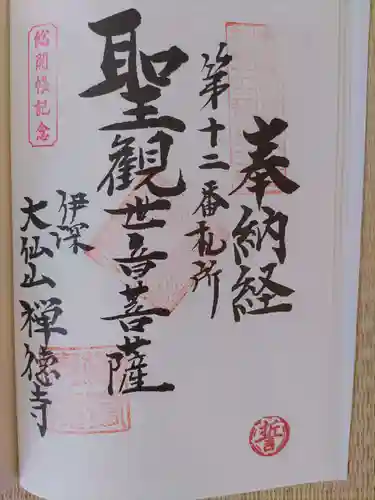 奉納経
第十二番札所
聖観世音菩薩
伊深
大仙山禅徳寺
総開帳記念